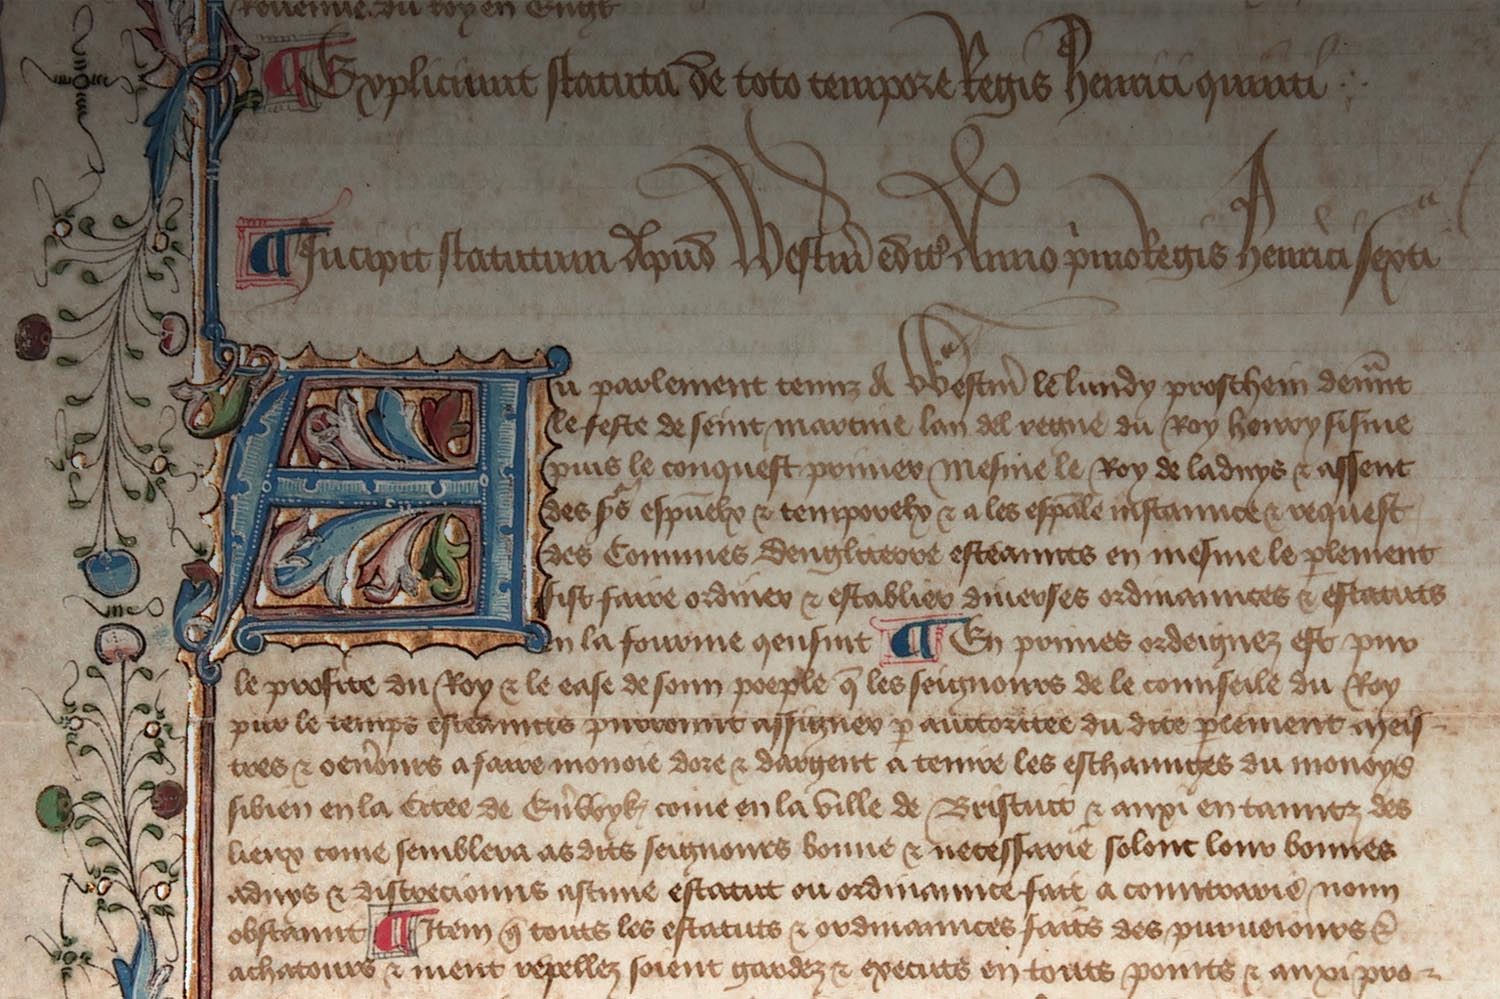 Revenue du roy en Engl
¶ Expliciunt statuta de toto tempore Regis Henrici quinti
¶ Incipit statutum Apud Westm̄ edit Anno p̄mo Regis Henrici sexti
Au parlement tenuz A Westm̄ le lundy proschein deuñt
le feste de seint martine lan del regne du Roy henry sisme
puis le conquest primer mesme le Roy de laduys & assent
des sʳs espũelx & temporelx & a les esp̄ale instaunce & request
des Communes Dengliterre esteauntz en mesme le p̱lement
fist faire ordiner & establier diuerses ordinaunces & estatuts
en la fourme qensuit ¶ En primes ordeignez est pur
le profite du Roy & le ease de soun poeple q̄ les seignours de le counseile du Roy
pur le temps esteauntz purrount assigner p̱ auctoritee du dite p̱lement meis
tres & oeṽours a faire monoie dore & dargent a tenire les eschaunges du monoys
sibien en la Citee de Eũwyk come en la ville de Bristuit & auxi en tauntz des
lieux come semblera as dits seignours bonne & necessarie solont lour bonnes
aduys & discrecionns ascune estatut ou ordinaunce fait a countrarie noun
obstaunt ¶ Item q̄ touts les estatuts & ordinaunces faits des purueiours &
achatours & nient repellez soient gardez & executs en touts points & auxi pro